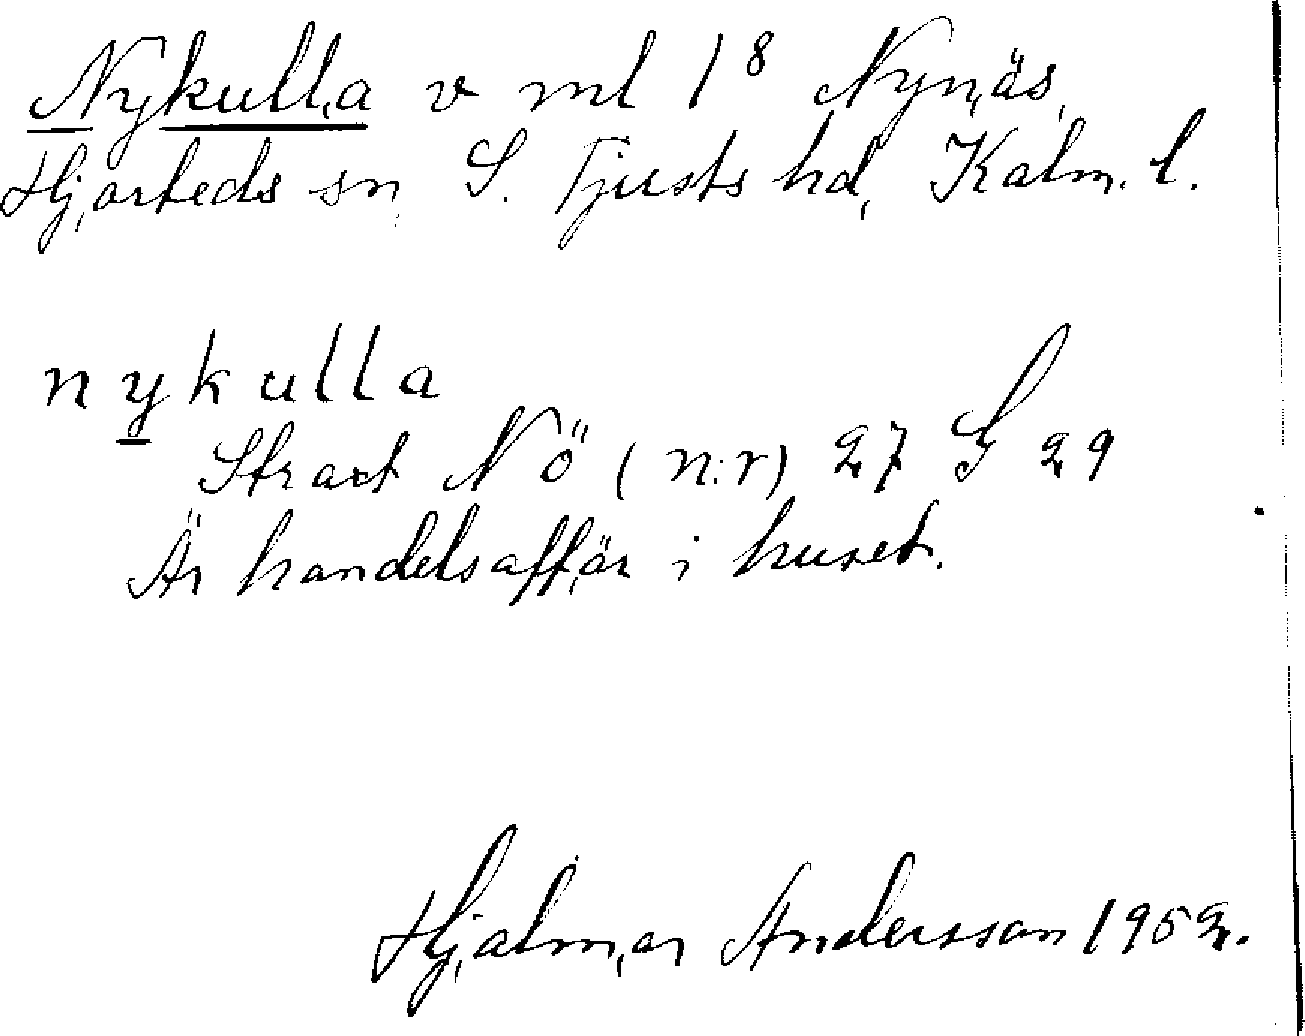 Nykulla v ml 1⁸ Nynäs,
Hjorteds sn, S. Tjusts hd, Kalm. l.
nykulla
Strax NÖ (n:r) 27 G 29
Är handelsaffär i huset.
Hjalmar Andersson 1952.